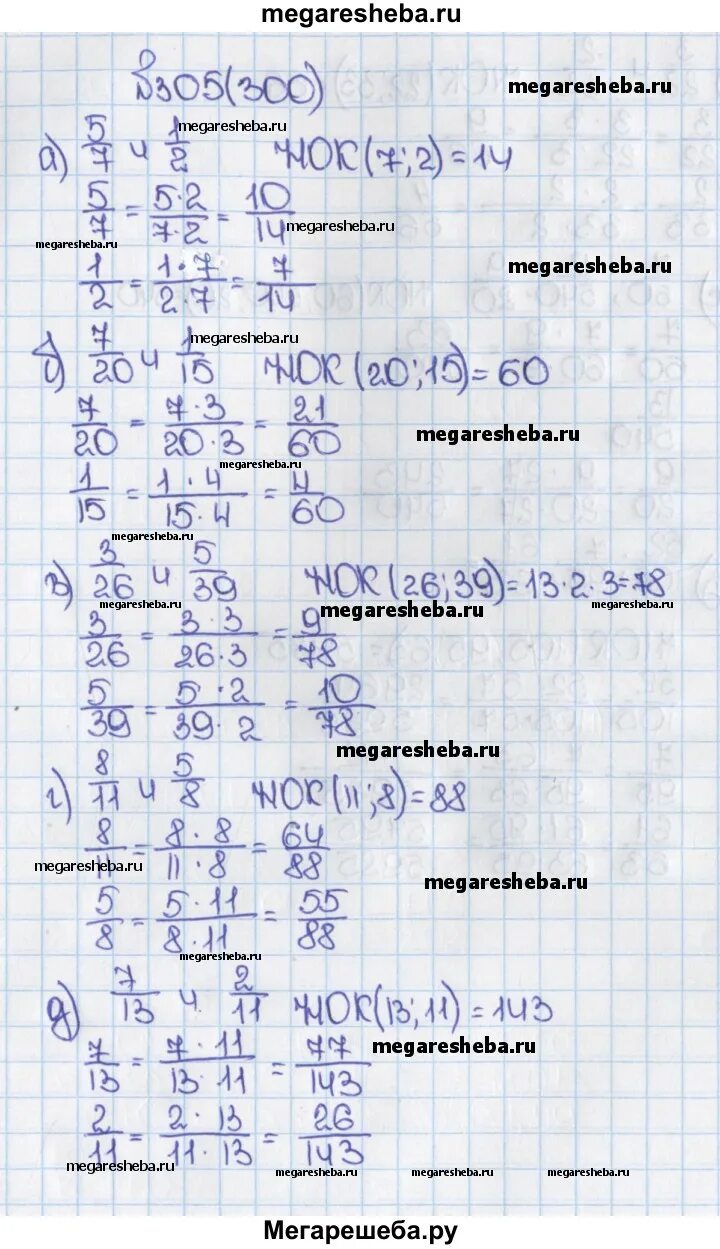 megaresheba.ru
№305(300) megaresheba.ru
megaresheba.ru
а) 5/7 и 1/2 НОК(7;2)=14
5/7 = 5·2/7·2 = 10/14
megaresheba.ru
megaresheba.ru
megaresheba.ru
1/2 = 1·7/2·7 = 7/14
megaresheba.ru
б) 7/20 и 1/15 НОК(20;15)=60
7/20 = 7·3/20·3 = 21/60
megaresheba.ru
megaresheba.ru
1/15 = 1·4/15·4 = 4/60
megaresheba.ru
в) 3/26 и 5/39 НОК(26;39)=13·2·3=78
megaresheba.ru
megaresheba.ru
3/26 = 3·3/26·3 = 9/78
5/39 = 5·2/39·2 = 10/78
megaresheba.ru
г) 8/11 и 5/8 НОК(11;8)=88
8/11 = 8·8/11·8 = 64/88
megaresheba.ru
megaresheba.ru
5/8 = 5·11/8·11 = 55/88
megaresheba.ru
д) 7/13 и 2/11 НОК(13;11)=143
megaresheba.ru
7/13 = 7·11/13·11 = 77/143
2/11 = 2·13/11·13 = 26/143
megaresheba.ru
megaresheba.ru megaresheba.ru megaresheba.ru
Мегарешеба.ру